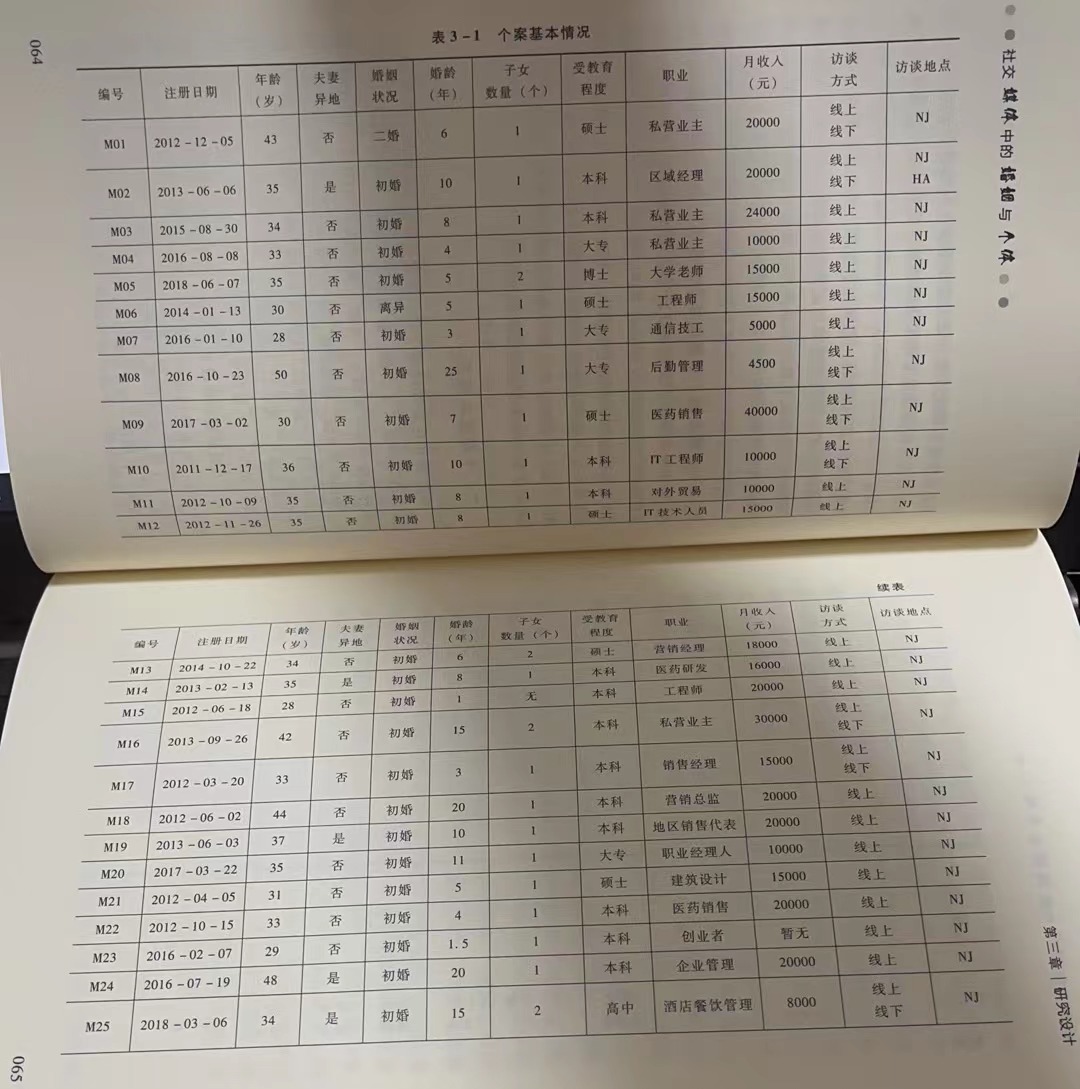 064
社交媒体中的婚姻与个体
表 3-1 个案基本情况
编号 注册日期 年龄（岁） 夫妻异地 婚姻状况 婚龄（年） 子女数量（个） 受教育程度 职业 月收入（元） 访谈方式 访谈地点
M01 2012-12-05 43 否 二婚 6 1 硕士 私营业主 20000 线上 线下 NJ
M02 2013-06-06 35 是 初婚 10 1 本科 区域经理 20000 线上 线下 NJ HA
M03 2015-08-30 34 否 初婚 8 1 本科 私营业主 24000 线上 NJ
M04 2016-08-08 33 否 初婚 4 1 大专 私营业主 10000 线上 NJ
M05 2018-06-07 35 否 初婚 5 2 博士 大学老师 15000 线上 NJ
M06 2014-01-13 30 否 离异 5 1 硕士 工程师 15000 线上 NJ
M07 2016-01-10 28 否 初婚 3 1 大专 通信技工 5000 线上 NJ
M08 2016-10-23 50 否 初婚 25 1 大专 后勤管理 4500 线上 线下 NJ
M09 2017-03-02 30 否 初婚 7 1 硕士 医药销售 40000 线上 线下 NJ
M10 2011-12-17 36 否 初婚 10 1 本科 IT工程师 10000 线上 线下 NJ
M11 2012-10-09 35 否 初婚 8 1 本科 对外贸易 10000 线上 NJ
M12 2012-11-26 35 否 初婚 8 1 硕士 IT技术人员 15000 线上 NJ
续表
编号 注册日期 年龄（岁） 夫妻异地 婚姻状况 婚龄（年） 子女数量（个） 受教育程度 职业 月收入（元） 访谈方式 访谈地点
M13 2014-10-22 34 否 初婚 6 2 硕士 营销经理 18000 线上 NJ
M14 2013-02-13 35 是 初婚 8 1 本科 医药研发 16000 线上 NJ
M15 2012-06-18 28 否 初婚 1 无 本科 工程师 20000 线上 NJ
M16 2013-09-26 42 否 初婚 15 2 本科 私营业主 30000 线上 线下 NJ
M17 2012-03-20 33 否 初婚 3 1 本科 销售经理 15000 线上 线下 NJ
M18 2012-06-02 44 否 初婚 20 1 本科 营销总监 20000 线上 NJ
M19 2013-06-03 37 是 初婚 10 1 本科 地区销售代表 20000 线上 NJ
M20 2017-03-22 35 否 初婚 11 1 大专 职业经理人 10000 线上 NJ
M21 2012-04-05 31 否 初婚 5 1 硕士 建筑设计 15000 线上 NJ
M22 2012-10-15 33 否 初婚 4 1 本科 医药销售 20000 线上 NJ
M23 2016-02-07 29 否 初婚 1.5 1 本科 创业者 暂无 线上 NJ
M24 2016-07-19 48 是 初婚 20 1 本科 企业管理 20000 线上 NJ
M25 2018-03-06 34 是 初婚 15 2 高中 酒店餐饮管理 8000 线上 线下 NJ
第三章 | 研究设计
065